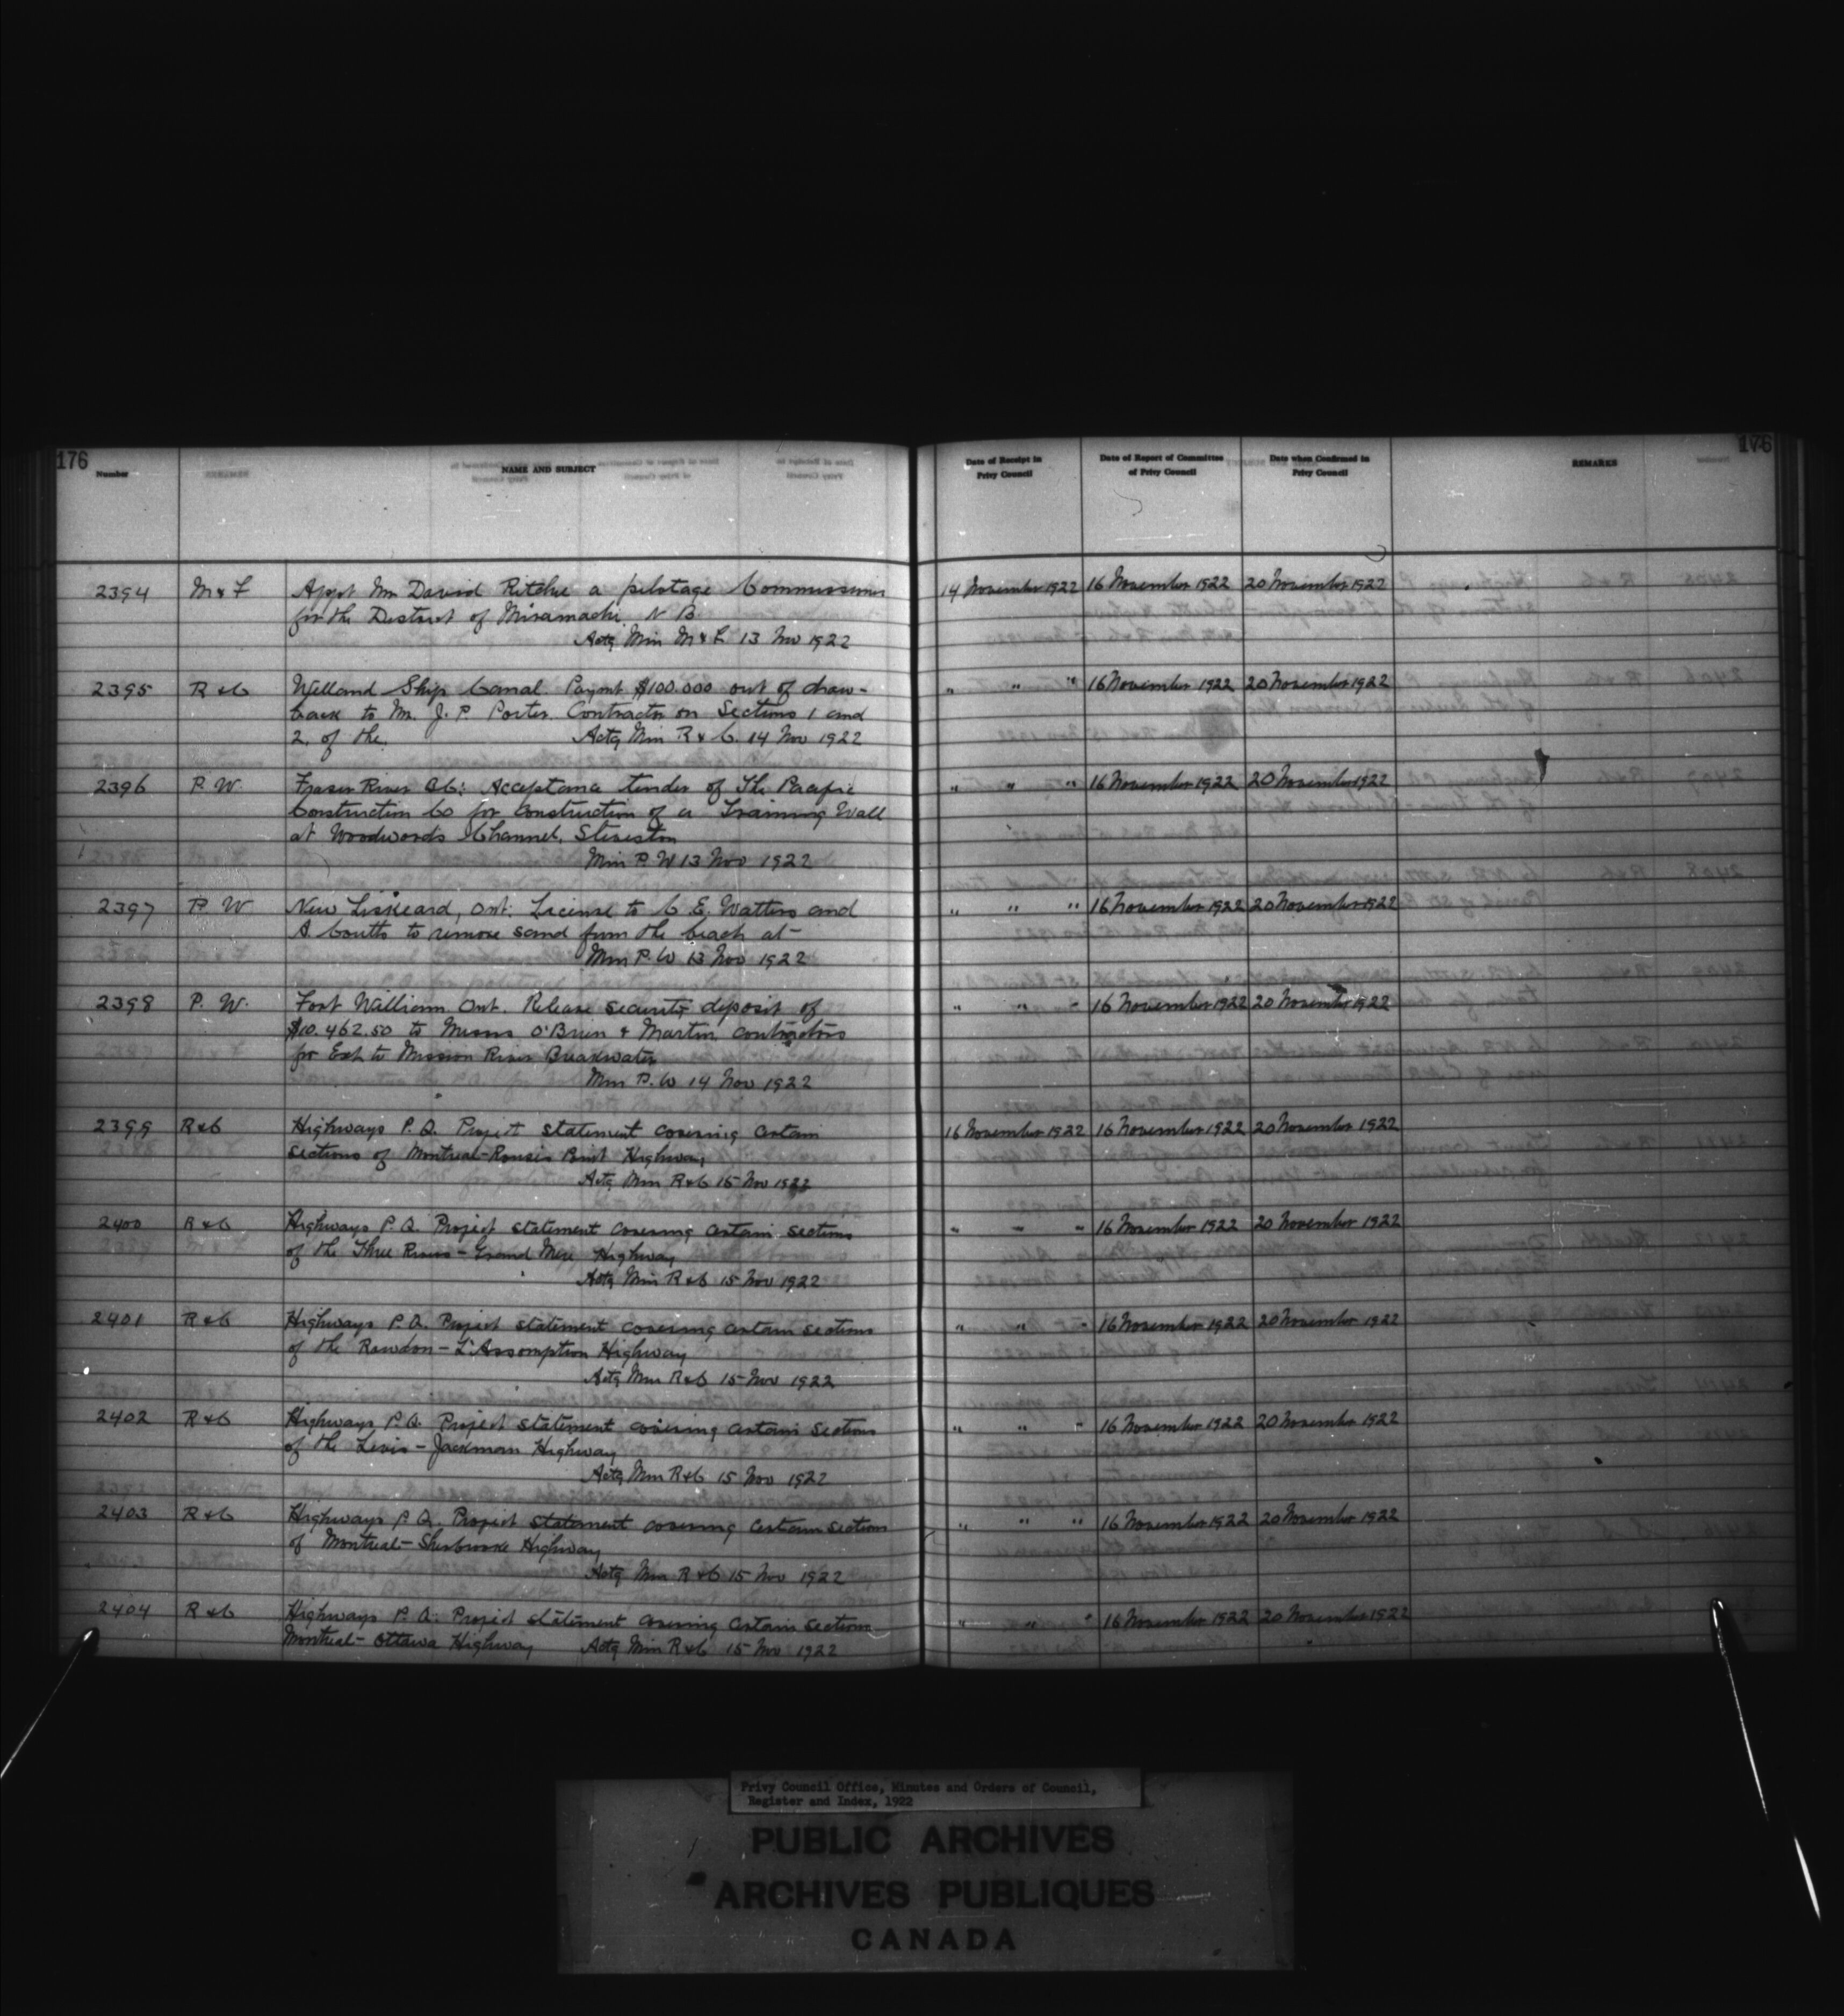 176
176
Number
NAME AND SUBJECT
Date of Receipt in Privy Council
Date of Report of Committee of Privy Council
Date when Confirmed in Privy Council
REMARKS
2394 M & F Appt Mr David Ritchie a pilotage Commissioner 14 November 1922 16 November 1922 20 November 1922
for the District of Miramachi N B
Actg Min M & F 13 Nov 1922
2395 R & C Welland Ship Canal Paymt $100.000 out of draw- " " " 16 November 1922 20 November 1922
back to Mr. J. P. Porter Contractor on Sections 1 and
2, of the. Actg Min R & C. 14 Nov 1922
2396 P. W. Fraser River BC: Acceptance tender of The Pacific " " " 16 November 1922 20 November 1922
Construction Co for construction of a Training Wall
at Woodwards Channel, Steveston
Min P. W 13 Nov 1922
2397 P. W New Liskeard, Ont: License to C. E. Watters and " " " 16 November 1922 20 November 1922
A Coutts to remove sand from the beach at-
Min P. W 13 Nov 1922
2398 P. W. Fort William Ont. Release security deposit of " " " 16 November 1922 20 November 1922
$10.462.50 to Messrs O'Brien & Martin contractors
for Ext to Mission River Breakwater
Min P. W 14 Nov 1922
2399 R&C Highways P. Q. Project statement covering certain 16 November 1922 16 November 1922 20 November 1922
sections of Montreal-Rouses Point Highway
Actg Min R&C 15 Nov 1922
2400 R&C Highways P. Q. Project statement covering certain sections " " " 16 November 1922 20 November 1922
of the Three Rivers - Grand Mere Highway
Actg Min R&C 15 Nov 1922
2401 R&C Highways P. Q. Project statement covering certain sections " " " 16 November 1922 20 November 1922
of the Rawdon - L'Assomption Highway
Actg Min R&C 15 Nov 1922
2402 R&C Highways P. Q. Project statement covering certain sections " " " 16 November 1922 20 November 1922
of the Levis - Jackman Highway
Actg Min R&C 15 Nov 1922
2403 R&C Highways P. Q. Project statement covering certain sections " " " 16 November 1922 20 November 1922
of Montreal - Sherbrooke Highway
Actg Min R&C 15 Nov 1922
2404 R&C Highways P. Q. Project statement covering certain sections " " " 16 November 1922 20 November 1922
Montreal - Ottawa Highway Actg Min R&C 15 Nov 1922
Privy Council Office, Minutes and Orders of Council,
Register and Index, 1922
PUBLIC ARCHIVES
ARCHIVES PUBLIQUES
CANADA